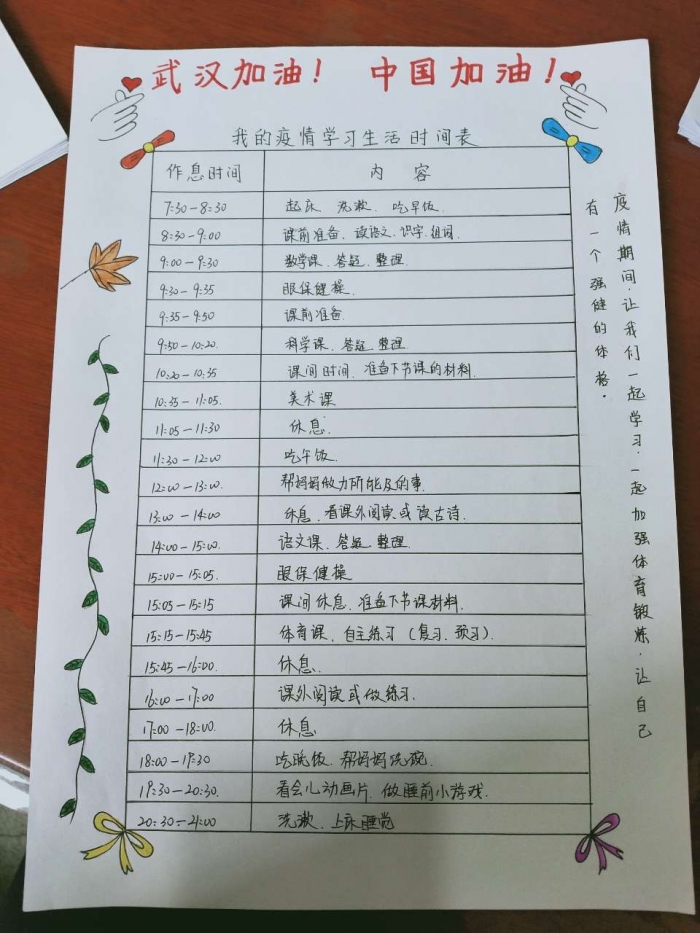 武汉加油! 中国加油!
我的疫情学习生活时间表
作息时间 内容
7:30-8:30 起床 洗漱、吃早饭
8:30-9:00 课前准备、读语文、识字、组词.
9:00-9:30 数学课、答疑、整理
9:30-9:35 眼保健操
9:35-9:50 课前准备
9:50-10:20. 科学课、答疑、整理
10:20-10:35 课间时间、准备下节课的材料.
10:35-11:05. 美术课
11:05-11:30 休息.
11:30-12:00 吃午饭.
12:00-13:00. 帮妈妈做力所能及的事.
13:00-14:00 休息、看课外阅读或读古诗.
14:00-15:00. 语文课、答疑、整理.
15:00-15:05. 眼保健操
15:05-15:15 课间休息、准备下节课材料.
15:15-15:45 体育课、自主练习(复习、预习).
15:45-16:00. 休息.
16:00-17:00 课外阅读或做练习.
17:00-18:00. 休息
18:00-19:30 吃晚饭、帮妈妈洗碗.
19:30-20:30. 看会儿动画片、做睡前小游戏.
20:30-21:00 洗漱、上床睡觉
疫情期间.让我们一起学习.一起加强体育锻炼.让自己
有一个强健的体格.